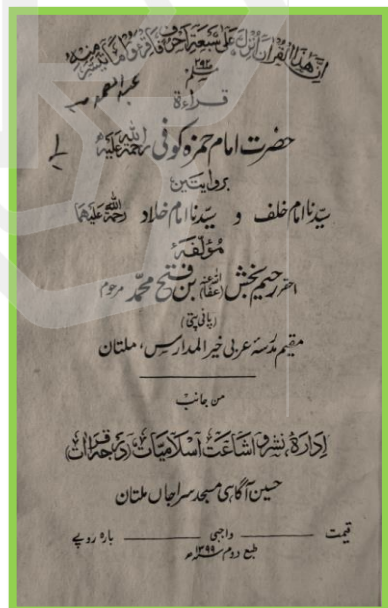 إن هذا القرآن أنزل على سبعة أحرف فاقرءوا ما تيسر منه
مسلم
قراءة
حضرت امام حمزہ کوفی رحمۃ اللہ علیہ
بروایتین
سیّدنا امام خلف و سیّدنا امام خلاد رحمۃ اللہ علیہما
مؤلفہ
احقر رحیم بخش (عفا اللہ عنہ) بن فتح محمّد مرحوم
(پانی پتی)
مقیم مدرسہ عربی خیر المدارس، ملتان
من جانب
ادارۂ نشر و اشاعت اسلامیات (درجہ قرات)
حسین آگاہی مسجد سراجاں ملتان
قیمت واجبی بارہ روپے
طبع دوم ۱۳۹۹ھ